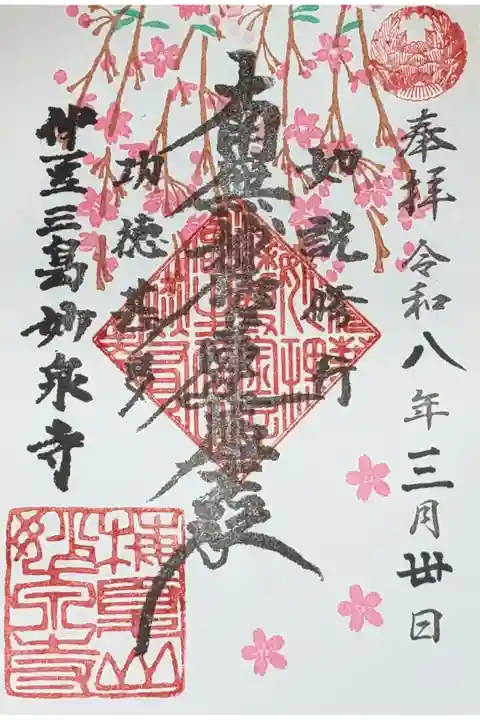 奉拝 令和八年三月丗日
如説修行
南無妙法蓮華経
功徳甚多
伊豆三島妙泉寺
妙泉寺